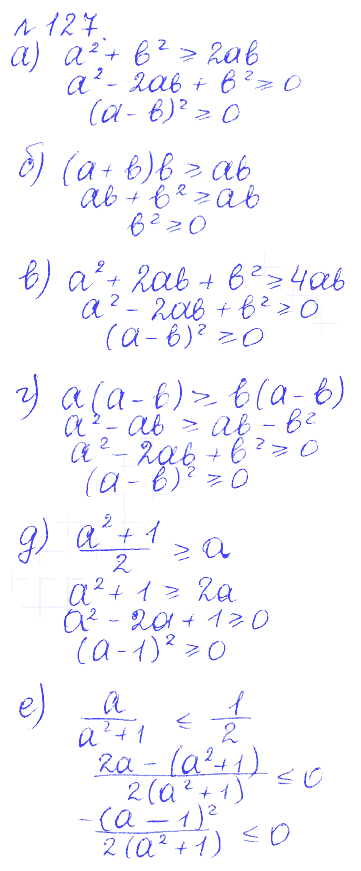 №127.
а) a² + b² ≥ 2ab
a² - 2ab + b² ≥ 0
(a - b)² ≥ 0
б) (a + b)b ≥ ab
ab + b² ≥ ab
b² ≥ 0
в) a² + 2ab + b² ≥ 4ab
a² - 2ab + b² ≥ 0
(a - b)² ≥ 0
г) a(a - b) ≥ b(a - b)
a² - ab ≥ ab - b²
a² - 2ab + b² ≥ 0
(a - b)² ≥ 0
д) (a² + 1)/2 ≥ a
a² + 1 ≥ 2a
a² - 2a + 1 ≥ 0
(a - 1)² ≥ 0
е) a/(a² + 1) ≤ 1/2
(2a - (a² + 1))/(2(a² + 1)) ≤ 0
-(a - 1)²/(2(a² + 1)) ≤ 0